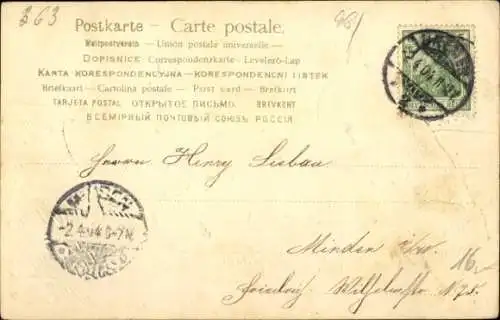 363
96/
Postkarte — Carte postale.
Weltpostverein — Union postale universelle —
DOPISNICE — Correspondenzkarte — Levelező-Lap
KARTA KORESPONDENCYJNA — KORESPONDENČNI LISTEK
Briefkaart — Cartolina postale — Post card — Brefkort
TARJETA POSTAL ОТКРЫТОЕ ПИСЬМО. BREVKORT
ВСЕМІРНЫЙ ПОЧТОВЫЙ СОЮЗЪ РОССІЯ
Herrn Henry Liebau
2.4.04.6-7N
Minden i/W.
16.—
Friedrich Wilhelmstr.